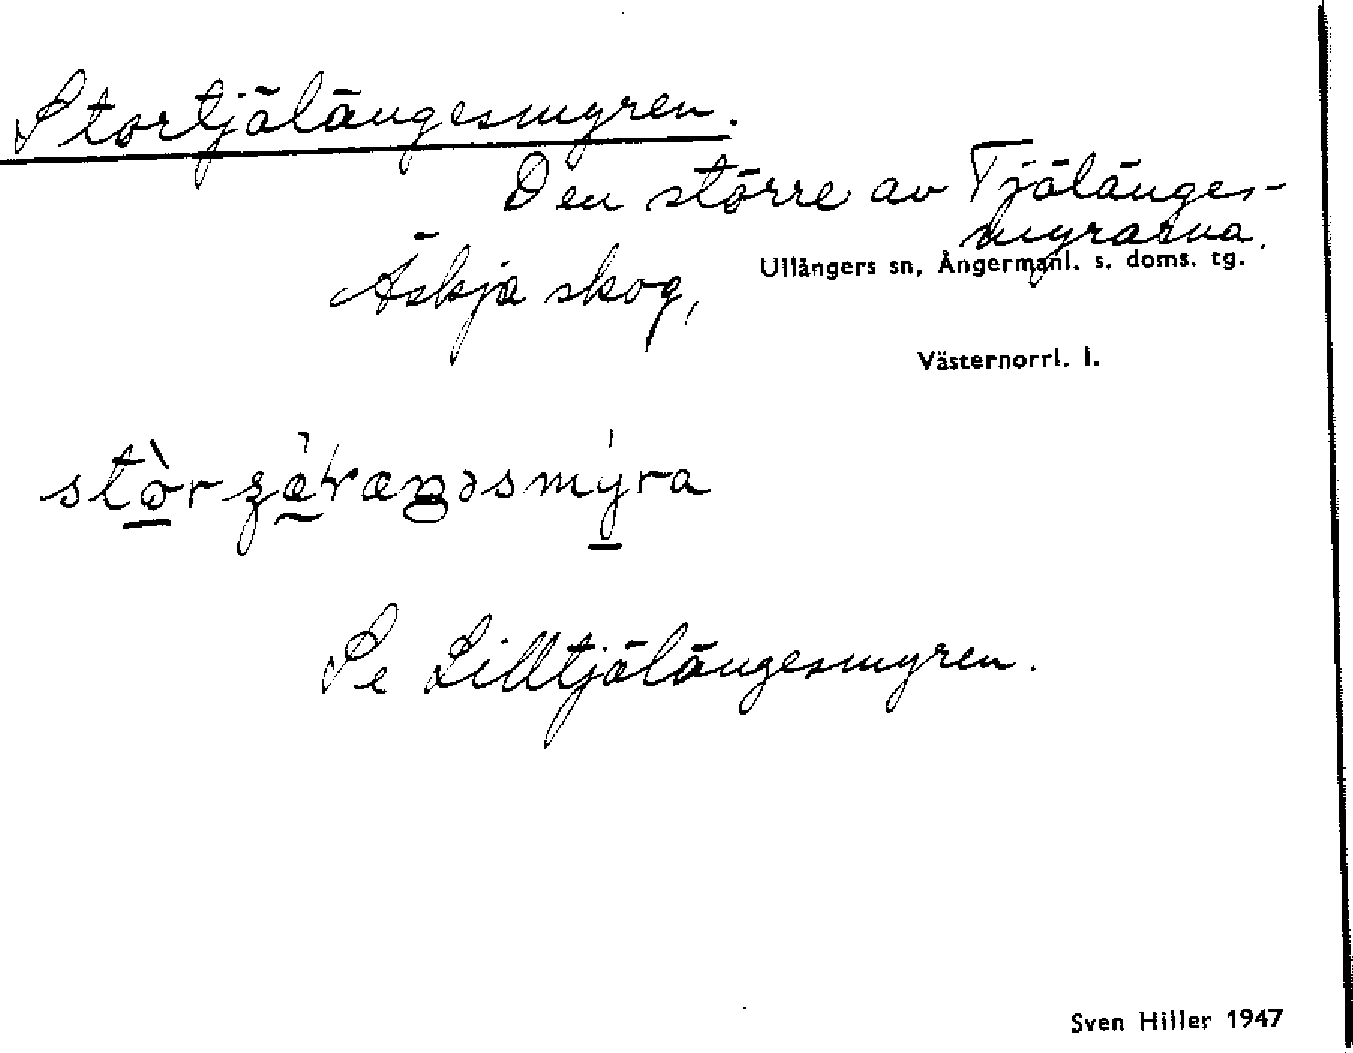 Stortjälängesmyren.
Den större av Tjälänges-
myrarna.
Äskja skog,
Ullångers sn, Ångermanl. s. doms. tg.
Västernorrl. l.
Se Lilltjälängesmyren.
Sven Hiller 1947